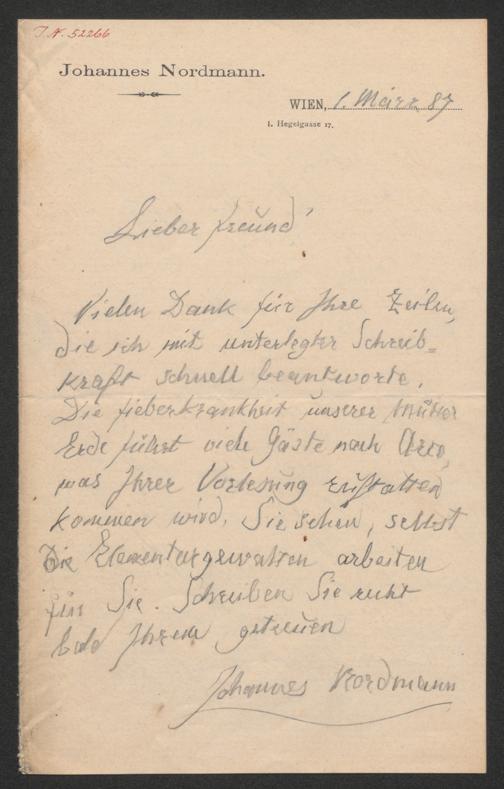 I.N. 52266
Johannes Nordmann.
WIEN, 1. März 87
I. Hegelgasse 17.
Lieber Freund!
Vielen Dank für Ihre Zeilen,
die ich mit unterlegter Schreib=
kraft schnell beantworte.
Die Fieberkrankheit unserer Mutter
Erde führt viele Gäste nach Arco,
was Ihrer Vorlesung zustatten
kommen wird. Sie sehen, selbst
die Elementargewalten arbeiten
für Sie. Schreiben Sie recht
bald Ihrem getreuen
Johannes Nordmann